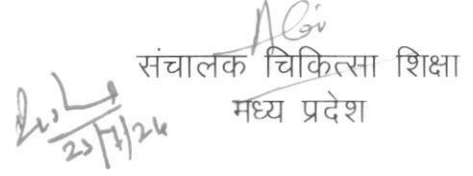 संचालक चिकित्सा शिक्षा
मध्य प्रदेश
23/7/24